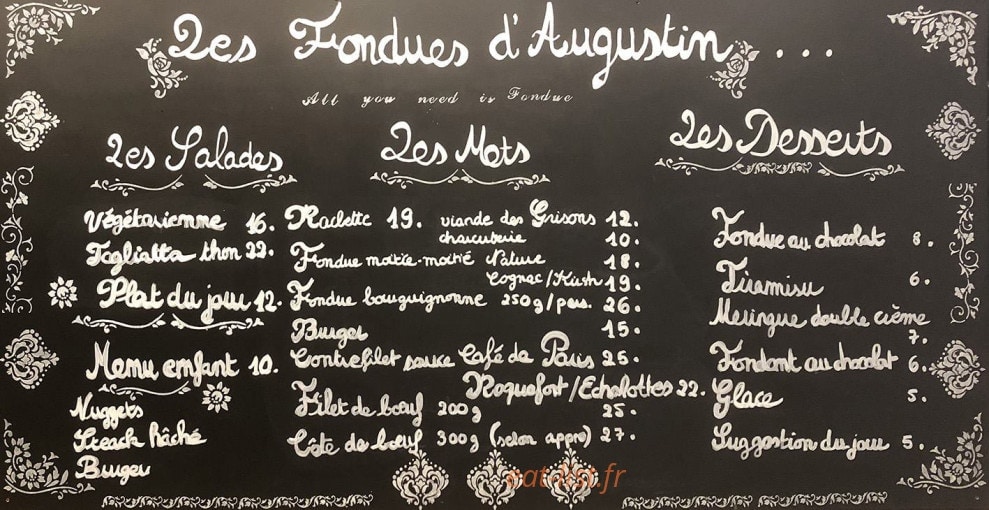 Les Fondues d'Augustin ...
All you need is Fondue
Les Salades
Végétarienne 16.
Tagliatta thon 22.
Plat du jour 12.
Menu enfant 10.
Nuggets
Steack hâché
Burger
Les Mets
Raclette 19. viande des Grisons 12.
charcuterie 10.
Fondue moitié-moitié Nature 18.
Cognac/Kirsh 19.
Fondue bourguignonne 250g/pers. 26.
Burger 15.
Contrefilet sauce Café de Paris 25.
Roquefort/Echalottes 22.
Filet de bœuf 200g 25.
Côte de bœuf 300g (selon appro) 27.
Les Desserts
Fondue au chocolat 8.
Tiramisu 6.
Meringue double crème
7.
Fondant au chocolat 6.
Glace 5.
Suggestion du jour 5.
eat-list.fr